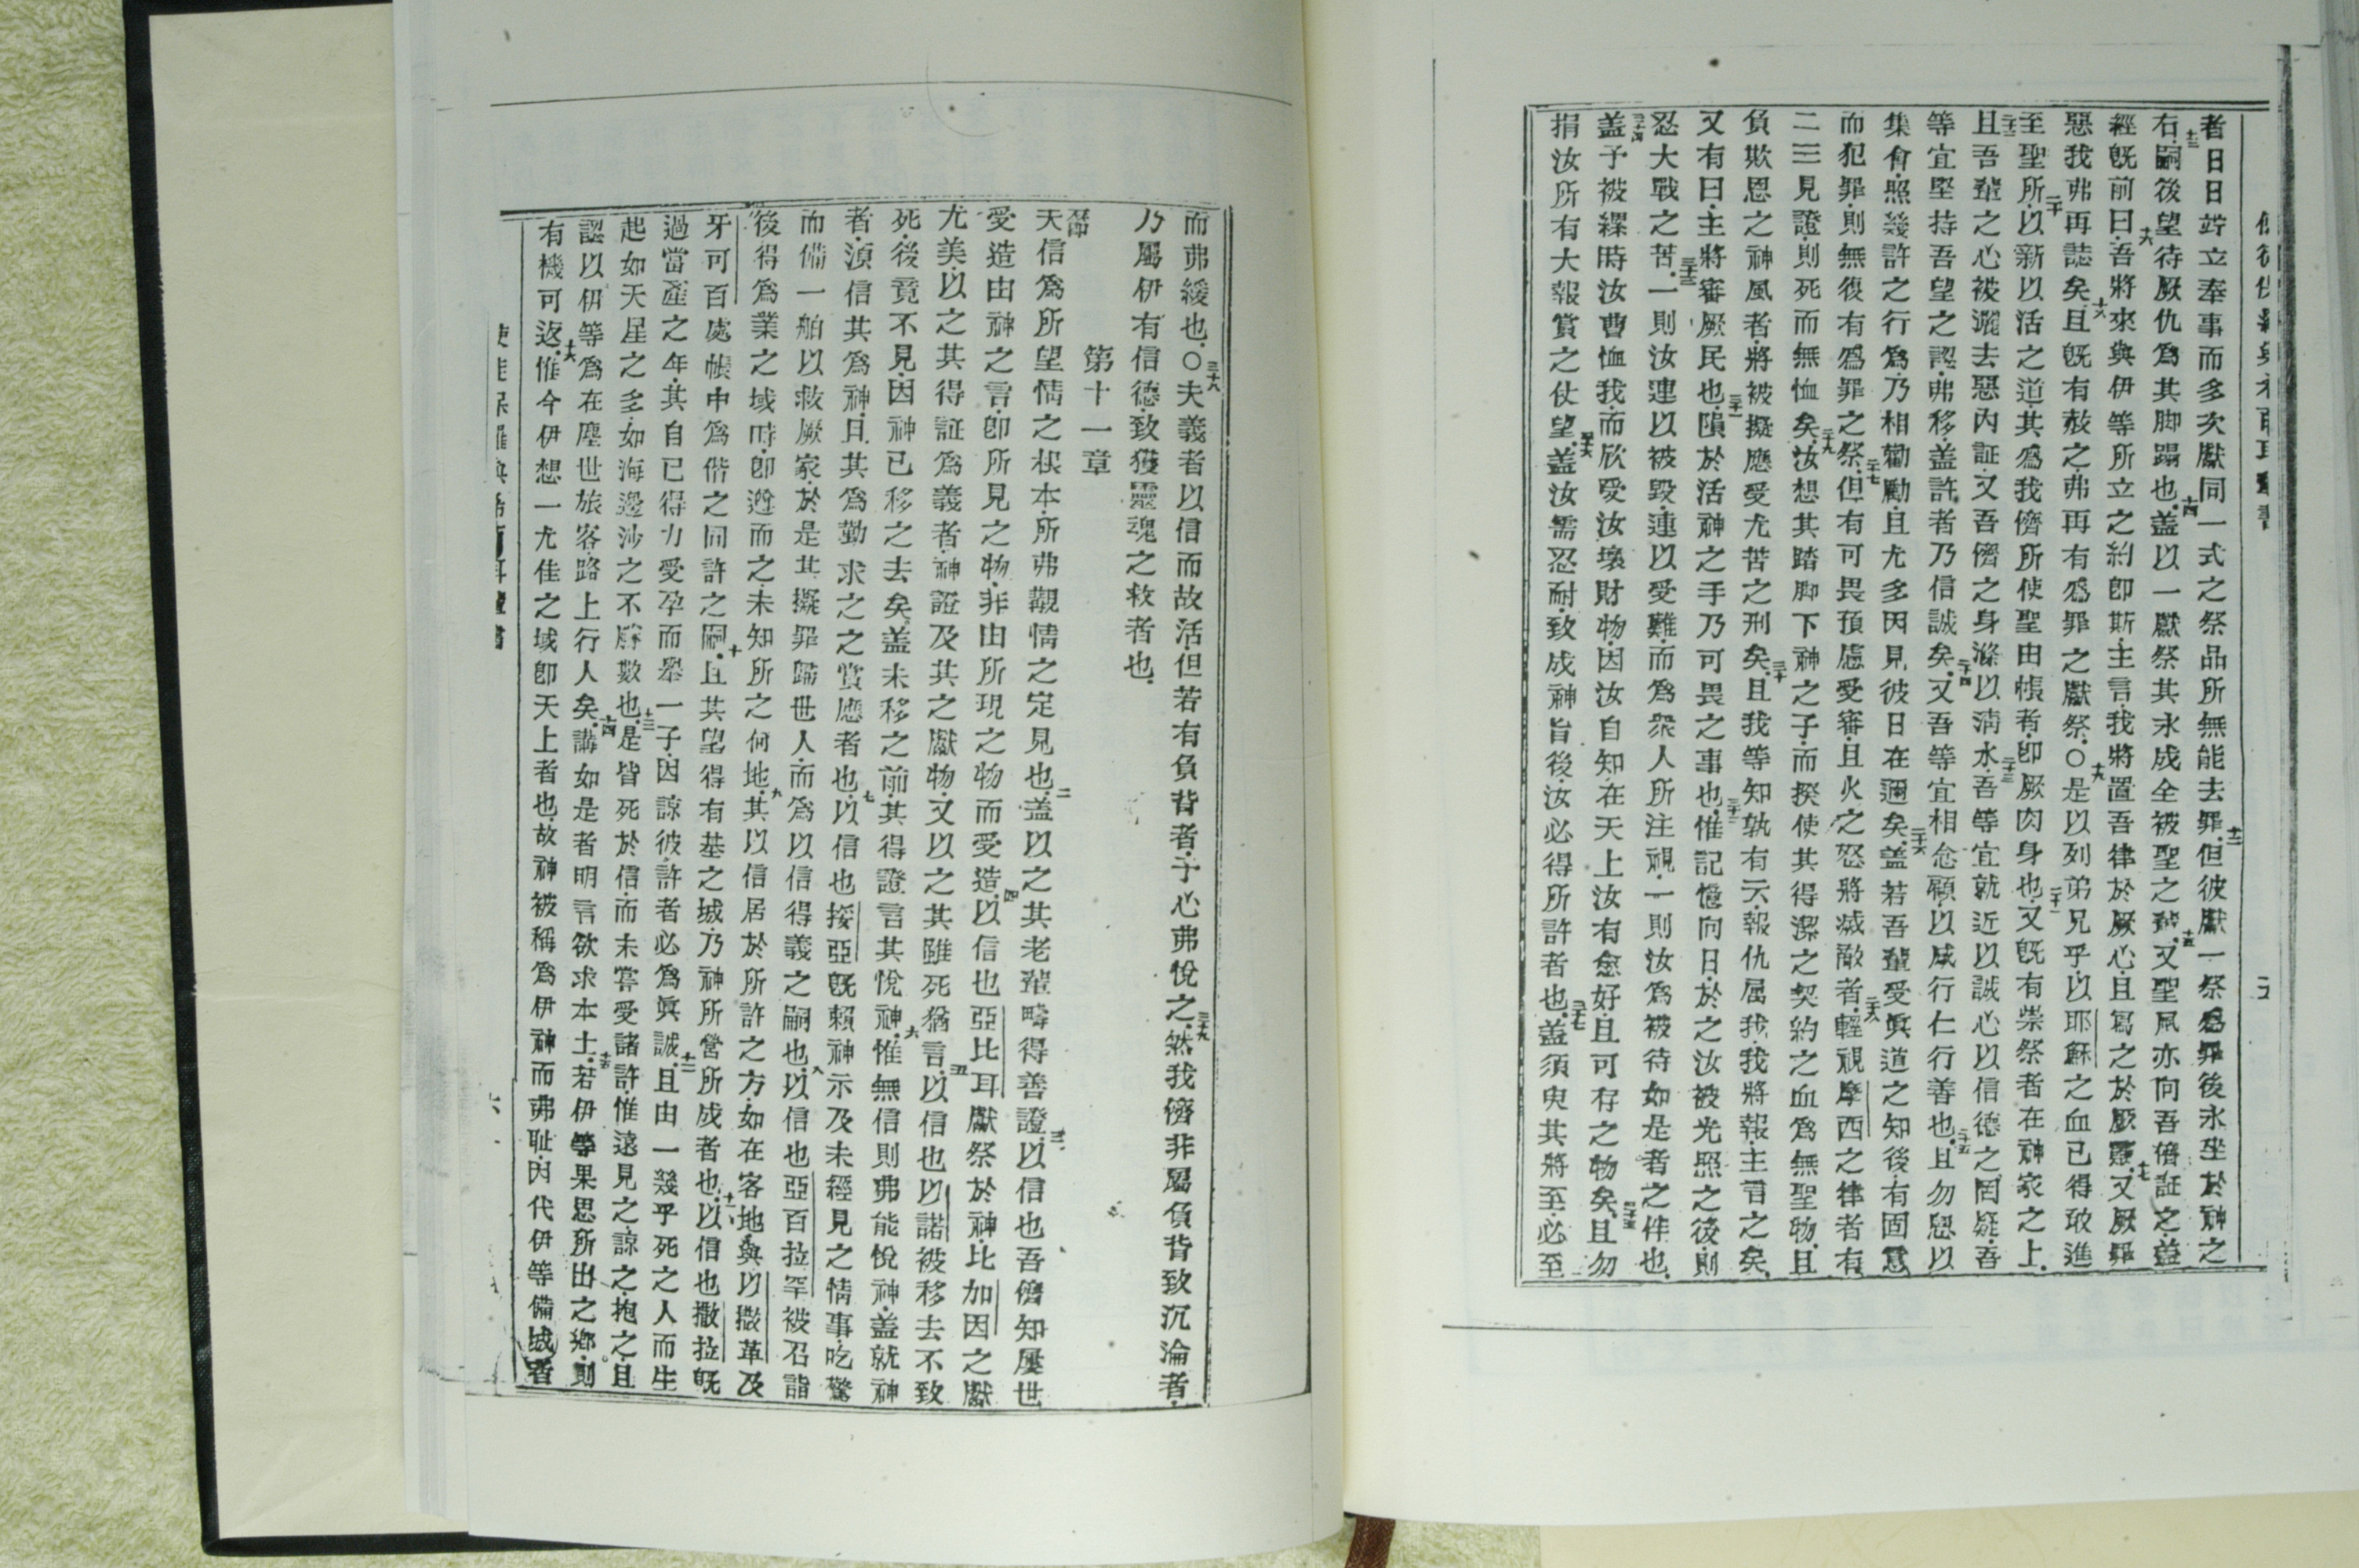 者日日竚立奉事而多次獻同一式之祭品所無能去罪十二但彼獻一祭爲罪後永坐於神之
右十三嗣後望待厥仇爲其脚蹋也十四盖以一獻祭其永成全被聖之輩十五又聖風亦向吾儕証之盖
經既前曰十六吾將來與伊等所立之約卽斯主言我將置吾律於厥心且寫之於厥靈十七又厥罪
惡我弗再誌矣十八且既有赦之弗再有爲罪之獻祭〇十九是以列弟兄乎以耶穌之血已得敢進
至聖所二十以新以活之道其爲我儕所使聖由帳者卽厥肉身也二十一又既有崇祭者在神家之上
二十二且吾輩之心被灑去惡內証又吾儕之身滌以淸水二十三吾等宜就近以誠心以信德之罔疑吾
等宜堅持吾望之認弗移盖許者乃信誠矣二十四又吾等宜相忩顧以感行仁行善也二十五且勿罢以
集會照幾許之行爲乃相勸勵且尤多因見彼日在邇矣二十六盖若吾輩受眞道之知後有固意
而犯罪則無復有爲罪之祭二十七但有可畏預慮受審且火之怒將滅敵者二十八輕視摩西之律者有
二三見證則死而無恤矣二十九汝想其踏脚下神之子而揆使其得潔之契約之血爲無聖物且
負欺恩之神風者將被擬應受尤苦之刑矣三十且我等知孰有云報仇屬我我將報主言之矣
又有曰主將審厥民也三十一隕於活神之手乃可畏之事也三十二惟記憶向日於之汝被光照之後則
忍大戰之苦三十三一則汝連以被毀連以受難而爲衆人所注視一則汝爲被待如是者之伴也
三十四盖予被縲時汝曹恤我而欣受汝壞財物因汝自知在天上汝有愈好且可存之物矣三十五且勿
捐汝所有大報賞之仗望三十六盖汝需忍耐致成神旨後汝必得所許者也三十七盖須臾其將至必至
而弗緩也〇三十八夫義者以信而故活但若有負背者予心弗悅之三十九然我儕非屬負背致沉淪者
乃屬伊有信德致獲靈魂之救者也
第十一章
天信爲所望情之根本所弗觀情之定見也二盖以之其老輩疇得善證三以信也吾儕知屢世
受造由神之言卽所見之物非由所現之物而受造四以信也亞比耳獻祭於神比加因之獻
尤美以之其得証爲義者神證及其之獻物又以之其雖死猶言五以信也以諾被移去不致
死後竟不見因神已移之去矣盖未移之前其得證言其悅神六惟無信則弗能悅神盖就神
者湏信其爲神且其爲勤求之之賞應者也七以信也挼亞既賴神示及未經見之情事吃驚
而備一舶以救厥家於是其擬罪歸世人而爲以信得義之嗣也八以信也亞百拉罕被召詣
後得爲業之域時卽遵而之未知所之何地九其以信居於所許之方如在客地與以撒革及
牙可百處帳中爲偕之同許之嗣十且其望得有基之城乃神所營所成者也十一以信也撒拉既
過當產之年其自己得力受孕而舉一子因諒彼許者必爲眞誠十二且由一幾乎死之人而生
起如天星之多如海邊沙之不勝數也十三是皆死於信而未嘗受諸許惟遠見之諒之抱之且
認以伊等爲在塵世旅客路上行人矣十四講如是者明言欲求本土十五若伊等果思所出之鄉則
有機可返十六惟今伊想一尤佳之域卽天上者也故神被稱爲伊神而弗耻因代伊等備城者
六一